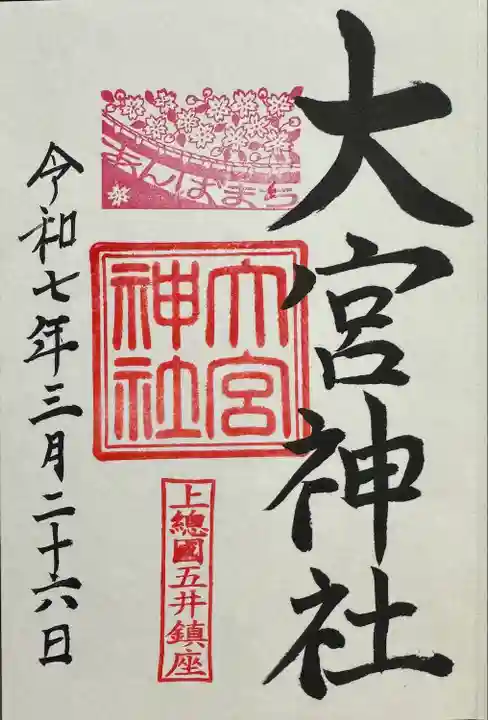 大宮神社
まんばまち
大宮
神社
上總國五井鎮座
令和七年三月二十六日